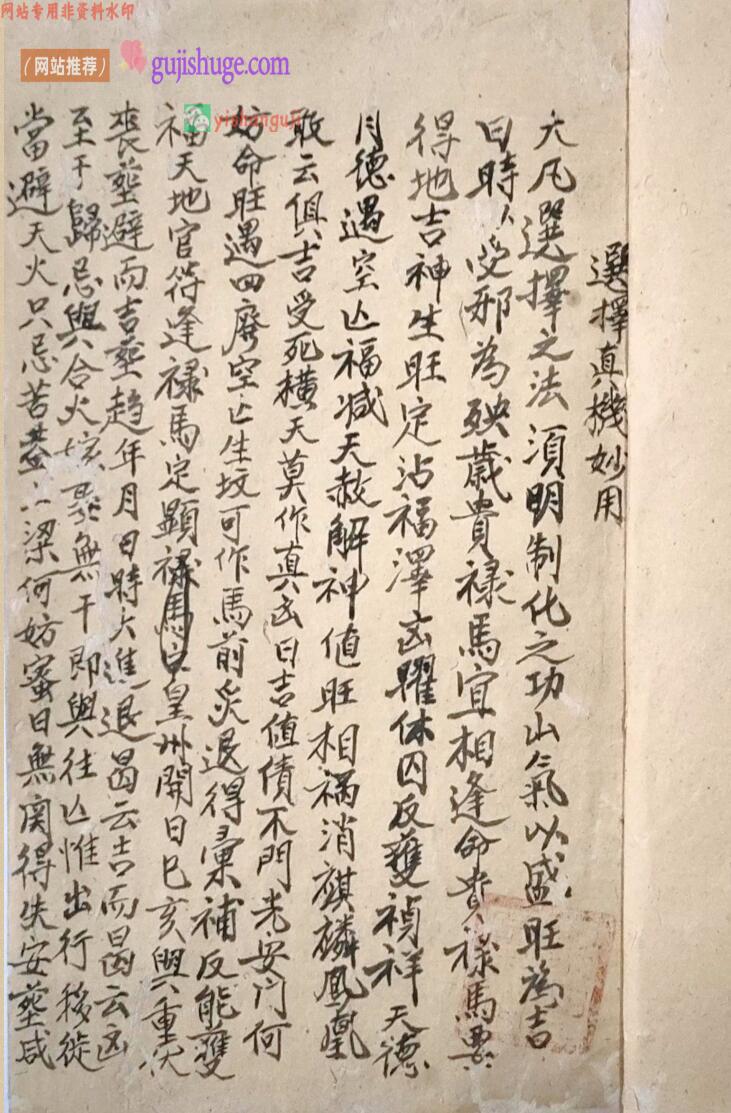 网站专用非资料水印
(网站推荐)
gujishuge.com
yishanguji
選擇真機妙用
大凡選擇之法須明制化之功山氣以盛旺為吉
日時以受邪為殃歲貴禄馬宜相逢命貴禄馬要
得地吉神生旺定沾福澤凶曜休囚反獲禎祥天德
月德遇空亡福减天赦解神值旺相禍消麒麟鳳凰
敢云俱吉受死横天莫作真凶日吉值債不門光安门何
妨命旺遇四廢空亡生坟可作馬前炎退得 補反能獲
福天地官符逢禄馬定顯禄馬 皇州開日巳亥與重伏
喪塟避而吉塟趋年月日時大進退曷云吉而曷云凶
至于歸忌與合火 無干即與往亡惟出行移徙
當避天火只忌苫蓋上梁何妨蜜日無関得失安塟咸